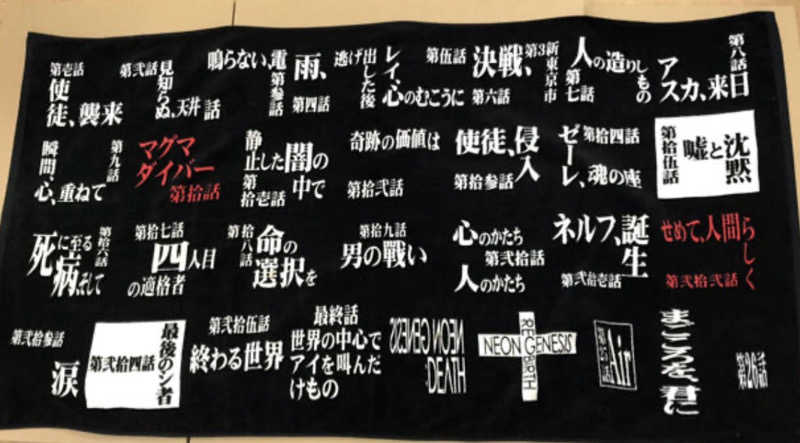 第壱話
使徒、襲来
第弐話
見知らぬ、天井
話
鳴らない、電
第参話
雨、
逃げ出した後
第四話
レイ、心のむこうに
第伍話
決戦、第3新東京市
第六話
人の造りしもの
第七話
第八話
アスカ、来日
第九話
瞬間、心、重ねて
マグマダイバー
第拾話
静止した闇の中で
第拾壱話
奇跡の価値は
第拾弐話
使徒、侵入
第拾参話
第拾四話
ゼーレ、魂の座
第拾伍話
嘘と沈黙
第拾六話
死に至る病、そして
第拾七話
四人目の適格者
第拾八話
命の選択を
第拾九話
男の戰い
心のかたち
第弐拾話
人のかたち
ネルフ、誕生
第弐拾壱話
せめて、人間らしく
第弐拾弐話
第弐拾参話
涙
第弐拾四話
最後のシ者
第弐拾伍話
終わる世界
最終話
世界の中心で
アイを叫んだ
けもの
NEON GENESIS
NEON GENESIS
:DEATH
NEON GENESIS
REBIRTH
第25話
Air
まごころを、君に
第26話